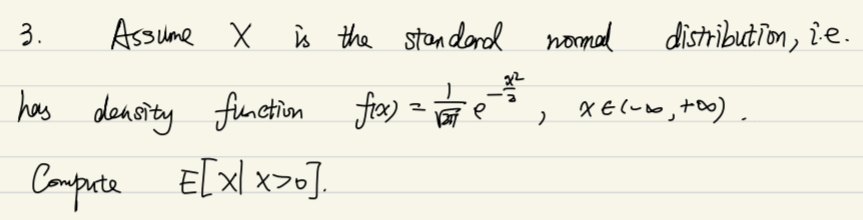 3. Assume X is the standard normal distribution, i.e.
has density function f(x) = \frac{1}{\sqrt{2\pi}} e^{-\frac{x^2}{2}}, x ∈ (-∞, +∞).
Compute E[X| X>0].